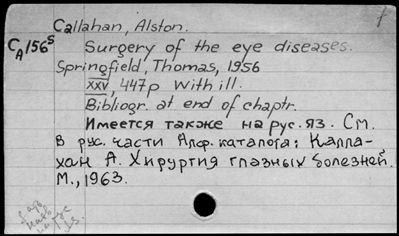 Callahan, Alston.
CA156s Surgery of the eye diseases.
Springfield, Thomas, 1956
XXV, 447p with ill.
Bibliogr. at end of chaptr.
Имеется также на рус. яз. См.
в рус. части Алф. каталога: Калла-
хан А. Хирургия глазных болезней.
М., 1963.